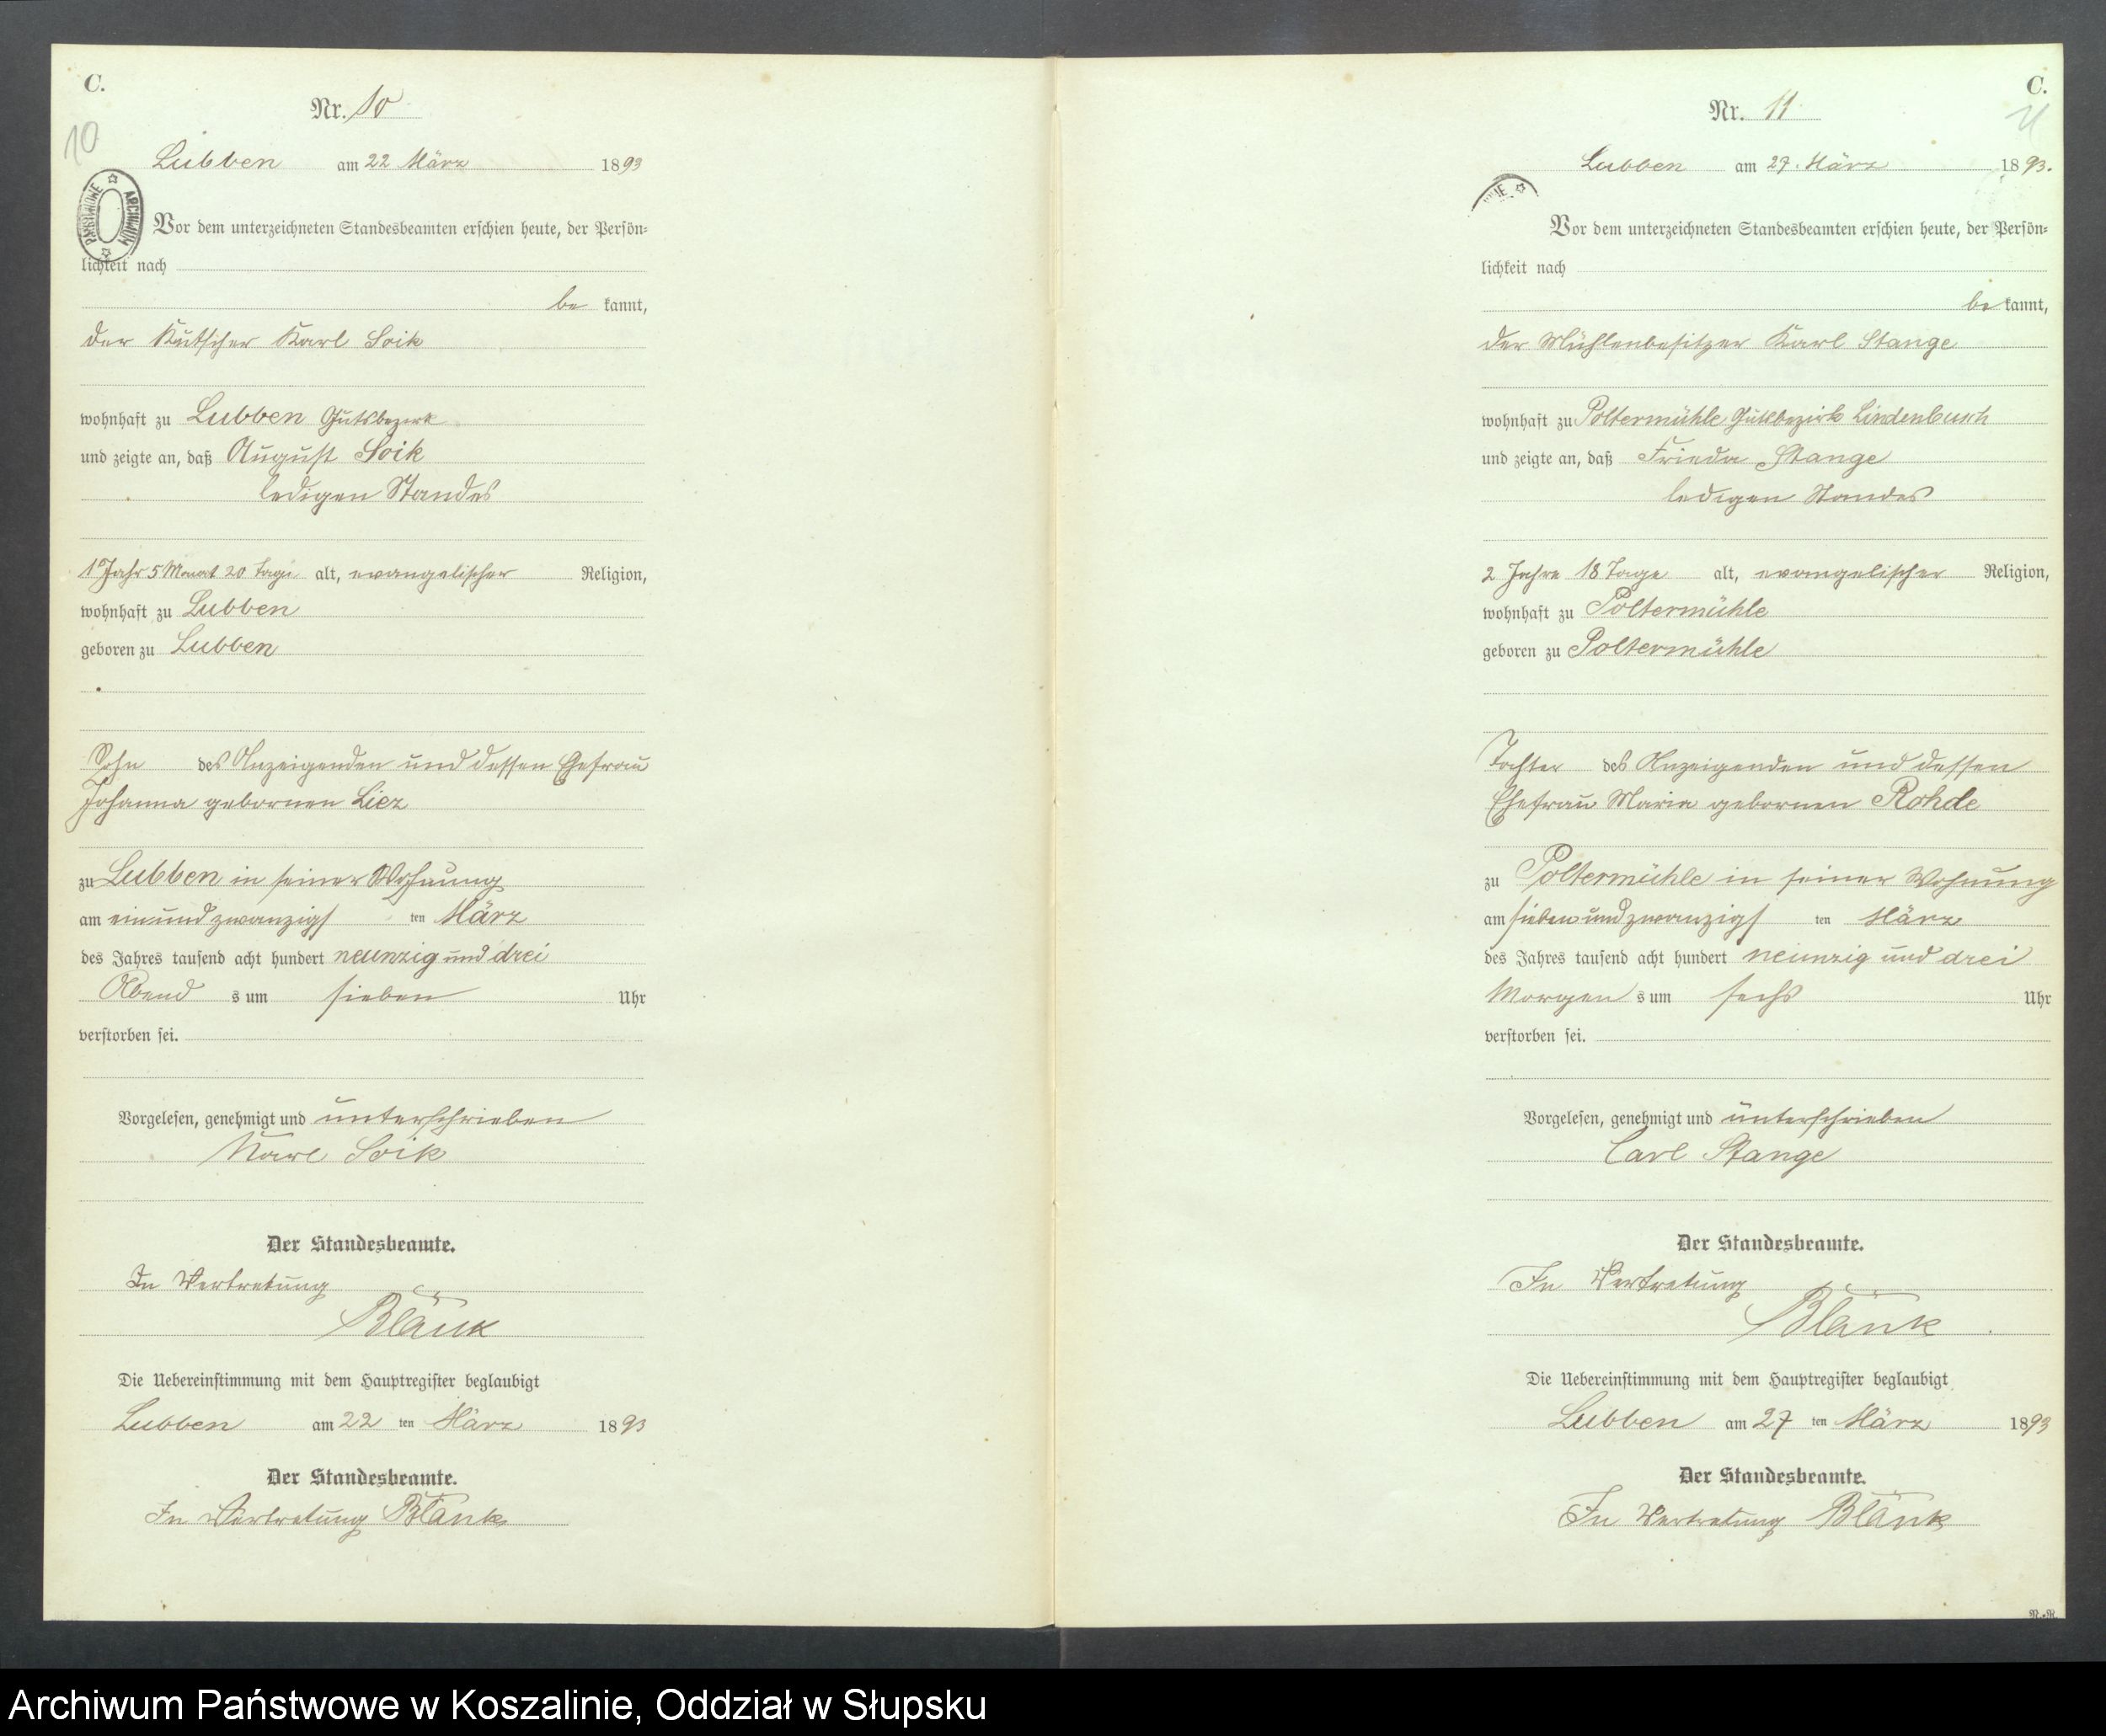 C.
Nr. 10
10
Lubben am 22 März 1893
ARCHIWUM PAŃSTWOWE
Vor dem unterzeichneten Standesbeamten erschien heute, der Persön=
lichkeit nach
be kannt,
der Kutscher Karl Soik
wohnhaft zu Lubben Gutsbezirk
und zeigte an, daß August Soik
ledigen Standes
1 Jahr 5 Monat 20 Tage alt, evangelischer Religion,
wohnhaft zu Lubben
geboren zu Lubben
Sohn des Anzeigenden und dessen Ehefrau
Johanna gebornen Liez
zu Lubben in seiner Wohnung
am einundzwanzigs ten März
des Jahres tausend acht hundert neunzig und drei
Abend s um sieben Uhr
verstorben sei.
Vorgelesen, genehmigt und unterschrieben
Karl Soik
Der Standesbeamte.
In Vertretung
Blänk
Die Uebereinstimmung mit dem Hauptregister beglaubigt
Lubben am 22 ten März 1893
Der Standesbeamte.
In Vertretung Blänk
C.
Nr. 11
11
Lubben am 27. März 1893.
Vor dem unterzeichneten Standesbeamten erschien heute, der Persön=
lichkeit nach
be kannt,
der Mühlenbesitzer Karl Stange
wohnhaft zu Poltermühle Gutsbezirk Lindenbusch
und zeigte an, daß Frieda Stange
ledigen Standes
2 Jahre 18 Tage alt, evangelischer Religion,
wohnhaft zu Poltermühle
geboren zu Poltermühle
Tochter des Anzeigenden und dessen
Ehefrau Maria gebornen Rohde
zu Poltermühle in seiner Wohnung
am siebenundzwanzigs ten März
des Jahres tausend acht hundert neunzig und drei
Morgen s um sechs Uhr
verstorben sei.
Vorgelesen, genehmigt und unterschrieben
Carl Stange
Der Standesbeamte.
In Vertretung
Blänk
Die Uebereinstimmung mit dem Hauptregister beglaubigt
Lubben am 27 ten März 1893
Der Standesbeamte.
In Vertretung Blänk
Archiwum Państwowe w Koszalinie, Oddział w Słupsku